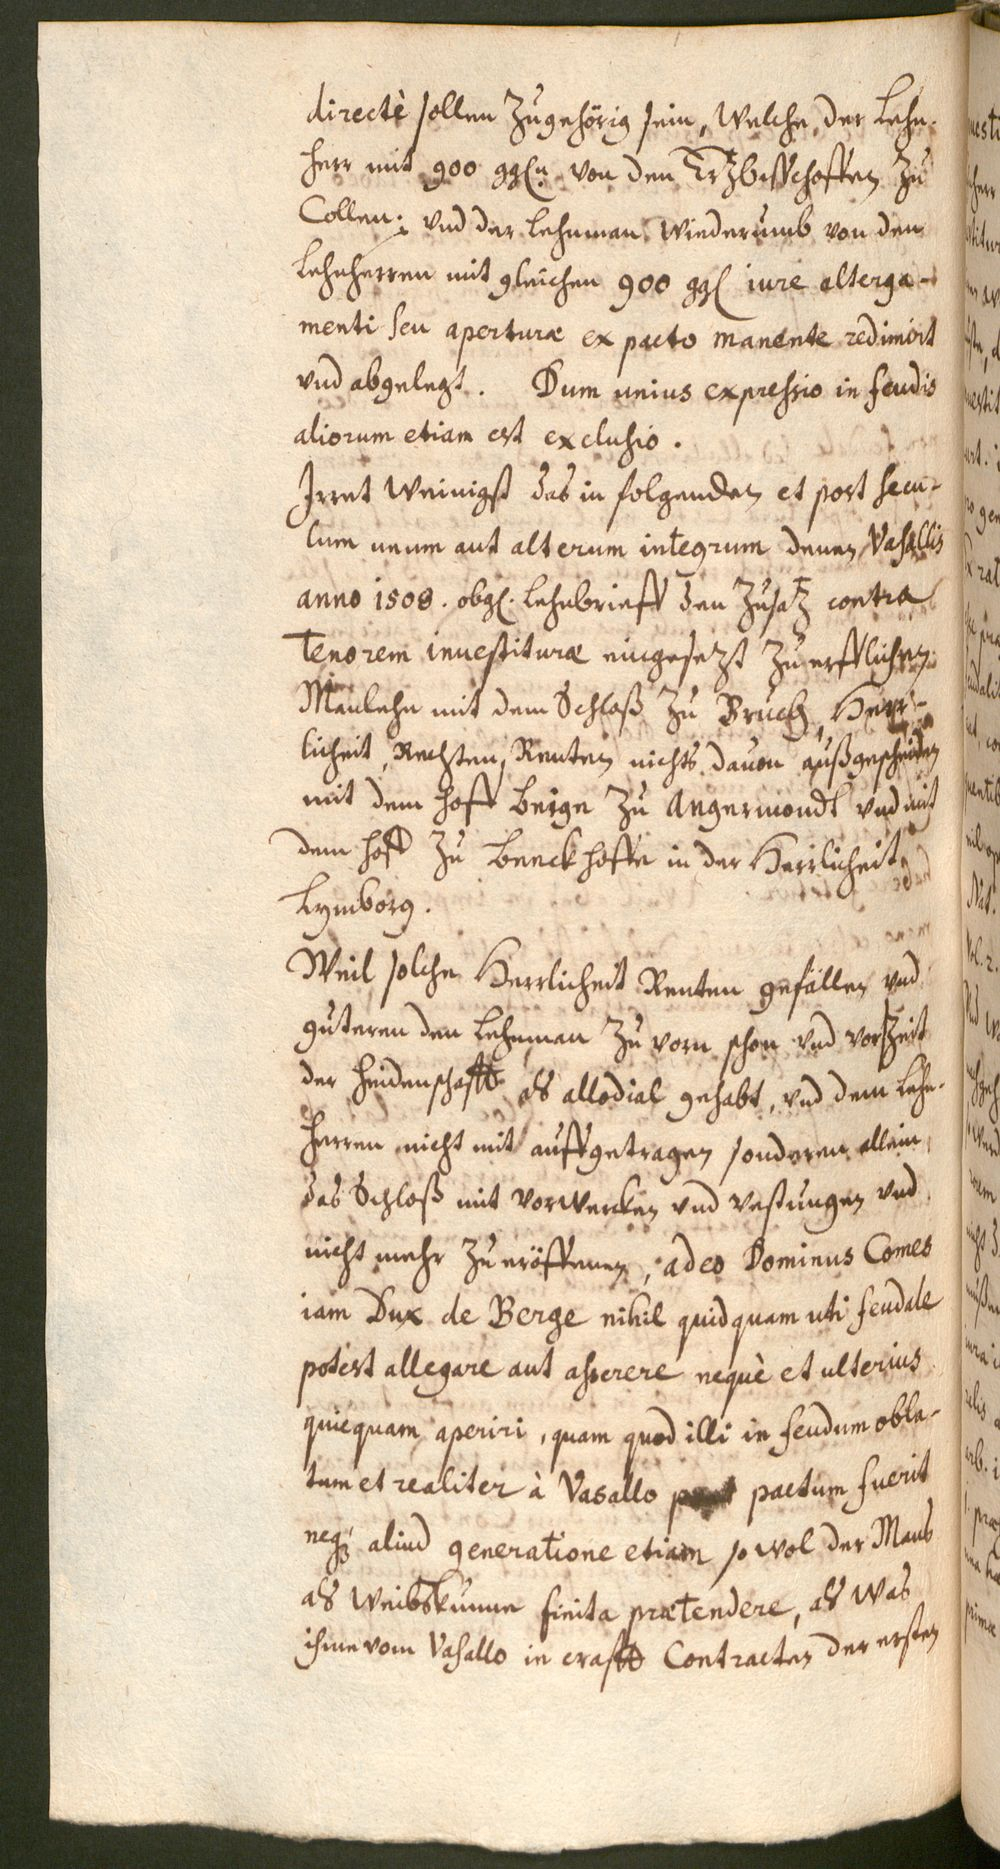 directè sollen Zugehörig sein, Welche der Lehn-
herr mit 900 ggln. von den Ertzbisschoffen Zu
Collen; vnd der Lehnman Wiederumb von den
Lehnherren mit gleichen 900 ggl iure alterga-
menti seu aperturæ ex pacto manente redimirt
vnd abgelegt. Dum unius expressio in feudis
aliorum etiam est exclusio.
Irret Weinigst das in folgenden et post secu-
lum unum aut alterum integrum denen Vasallis
anno 1508. obgl. Lehnbrieff den Zusatz contra
Tenorem inuestituræ eingesetzt Zu erfflichen
Manlehn mit dem Schloß Zu Bruch, Herr-
licheit, Rechten, Renten nichts dauon außgescheiden
mit dem hoff Berge Zu Angermondt vnd mit
dem hoff Zu Beeckhoffe in der Herrlicheit
Lymborg.
Weil solche Herrlicheit Renten gefällen vnd
guteren den Lehnman Zu vorn schon vnd vor Zeit
der heidenschafft als allodial gehabt, vnd dem Lehn-
herren nicht mit auffgetragen sonderen allein
das Schloß mit Vorwercken vnd Vestungen vnd
nicht mehr Zu eröffenen, adeo Dominus Comes
iam Dux de Berge nihil quidquam uti feudale
potest allegare aut asserere nequè et ulterius
quicquam aperiri, quam quod illi in feudum obla-
tum et realiter à Vasallo pactum fuerit
neq3 aliud generatione etiam so wol der Mans
als Weibskunne finita prætendere, als Was
ihme vom Vasallo in crafft Contracten der ersten